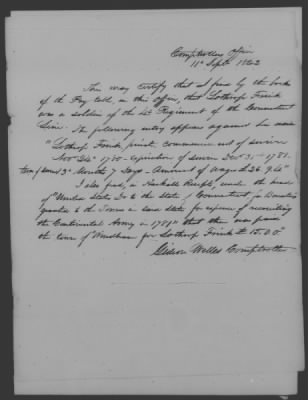 Comptrollers Office
11th Sept 1842
This may certify that I find by the books
of the Pay table, in this office, that Lothrop Frink
was a soldier of the 4th Regiment of the Connecticut
Line. The following entry appears against his name
"Lothrop Frink, private, commence out of service
Nov 24th 1780 - expiration of service Dec 31 - 1781.
3 Months, 7 Days - Amount of wages £ 26.9.4"
I also find, a under the head
of "United States Dr to the State of Connecticut for Bounties
granted to the Towns in said State for expense of recruiting
the Continental Army in 1781" that there was paid
the town of Windham for Lothrop Frink £ 15.0.0"
Gideon Welles Comptroller